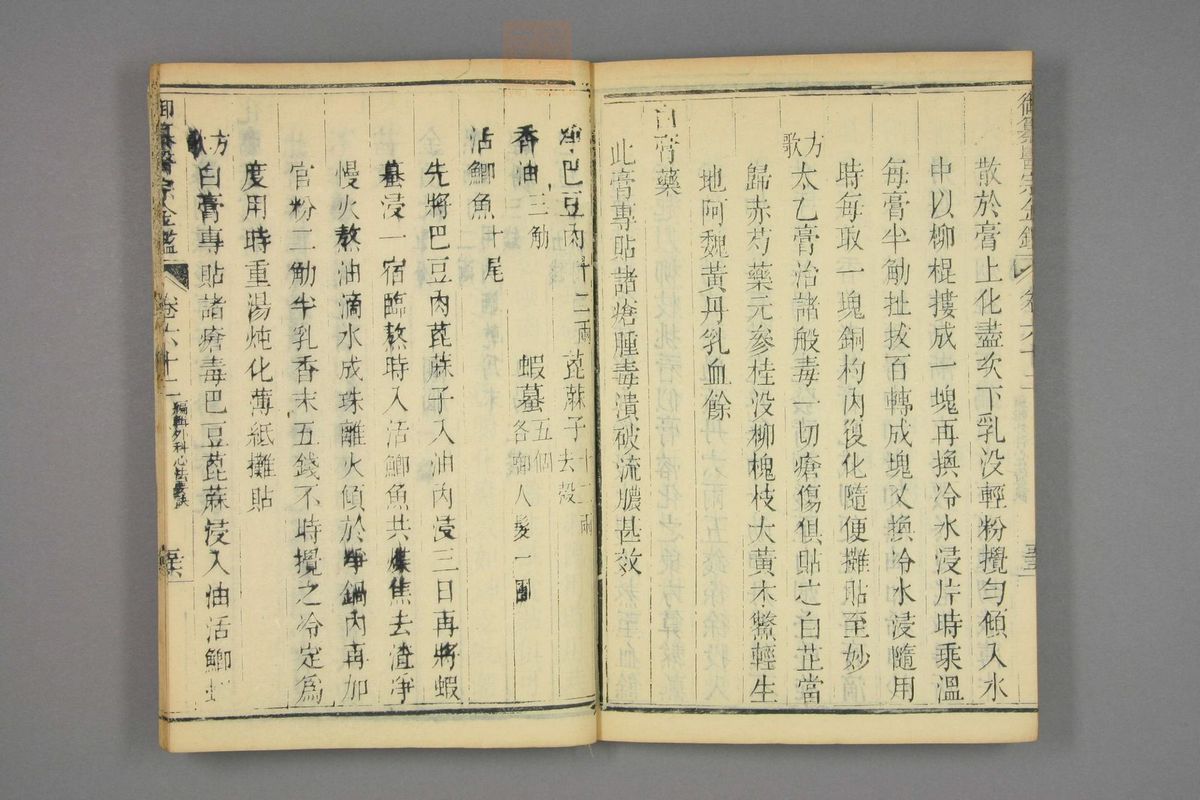 散於膏上化盡次下乳没輕粉攪勻傾入水
中以柳棍摟成一塊再換冷水浸片時乘溫
每膏半觔扯拔百轉成塊又換冷水浸隨用
時每取一塊銅杓內復化隨便攤貼至妙
方歌
太乙膏治諸般毒一切瘡傷俱貼之白芷當
歸赤芍藥元參桂没柳槐枝大黃木鱉輕生
地阿魏黃丹乳血餘
白膏藥
此膏專貼諸瘡腫毒潰破流膿甚效
淨巴豆肉十二兩 蓖蔴子去殼十二兩
香油三觔 蝦蟇五個各啣人髮一團
活鯽魚十尾
先將巴豆肉蓖蔴子入油內浸三日再將蝦
蟇浸一宿臨熬時入活鯽魚共煠焦去渣淨
慢火熬油滴水成珠離火傾於淨鍋內再加
官粉二觔半乳香末五錢不時攪之冷定爲
度用時重湯炖化薄紙攤貼
方歌
白膏專貼諸瘡毒巴豆蓖蔴浸入油活鯽
御纂醫宗金鑑 卷六十二 編輯外科心法要訣